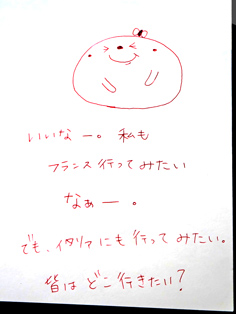 いいなー。私も
フランス行ってみたい
なぁー。
でも、イタリアにも行ってみたい。
皆はどこ行きたい?